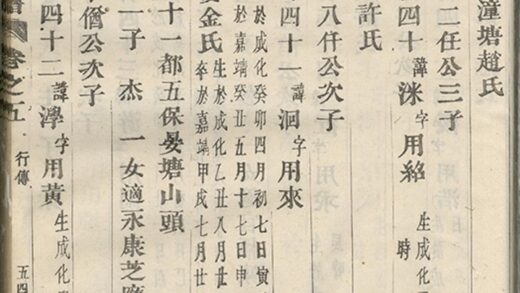 潼塘趙氏
二任公三子
四十諱洣字用絡生成化
時
許氏
八仟公次子
四十一諱洄字用來
於成化癸卯四月初七日寅
於嘉靖癸丑五月十七日申
金氏生於成化乙丑八月廿
卒於嘉靖甲戌七月廿
十一都五保晏塘山頭
二子杰一女適永康芝
僧公次子
四十二諱渟字用黃生成化
卷之五
行傳
五四